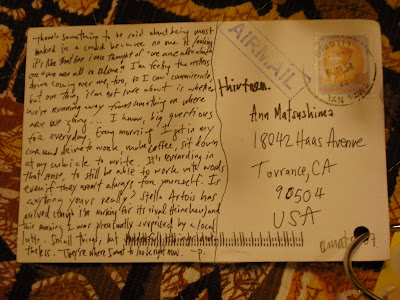 there's something to be said about being most
naked in a crowd because no one is looking
it's like that line I once thought of "we are all
one" "we are all so alone." I'm feeling the restless
drive coming over me, too, so I can commiserate
but one thing I am not sure about is whether
we're running away from something or where
are we going... I know, big questions
for everyday. Every morning I get in my
car and drive to work, make coffee, sit down
at my cubicle to write. It's rewarding in
that sense, to still be able to work with words
even if they aren't always for yourself. Is
anything yours really? Stella Artois has
arrived (though I'm working for its rival Heineken) and
this morning I was pleasantly surprised by a local
latte. Small things, but
theless. They're where I want to look right now. -p.
AIRMAIL
thirteen.
Ana Matsushima
18042 Haas Avenue
Torrance, CA
90504
USA